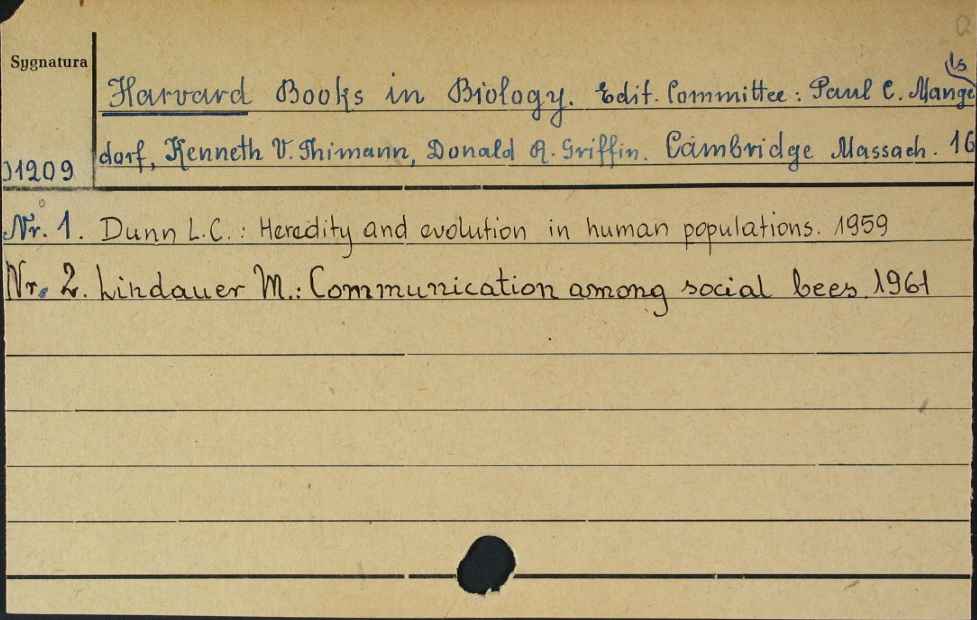 Sygnatura
Harvard Books in Biology. Edit. Committee: Paul C. Mangels
dorf, Kenneth V. Thimann, Donald R. Griffin. Cambridge Massach. 16
1209
Nr. 1. Dunn L.C.: Heredity and evolution in human populations. 1959
Nr. 2. Lindauer M.: Communication among social bees. 1961